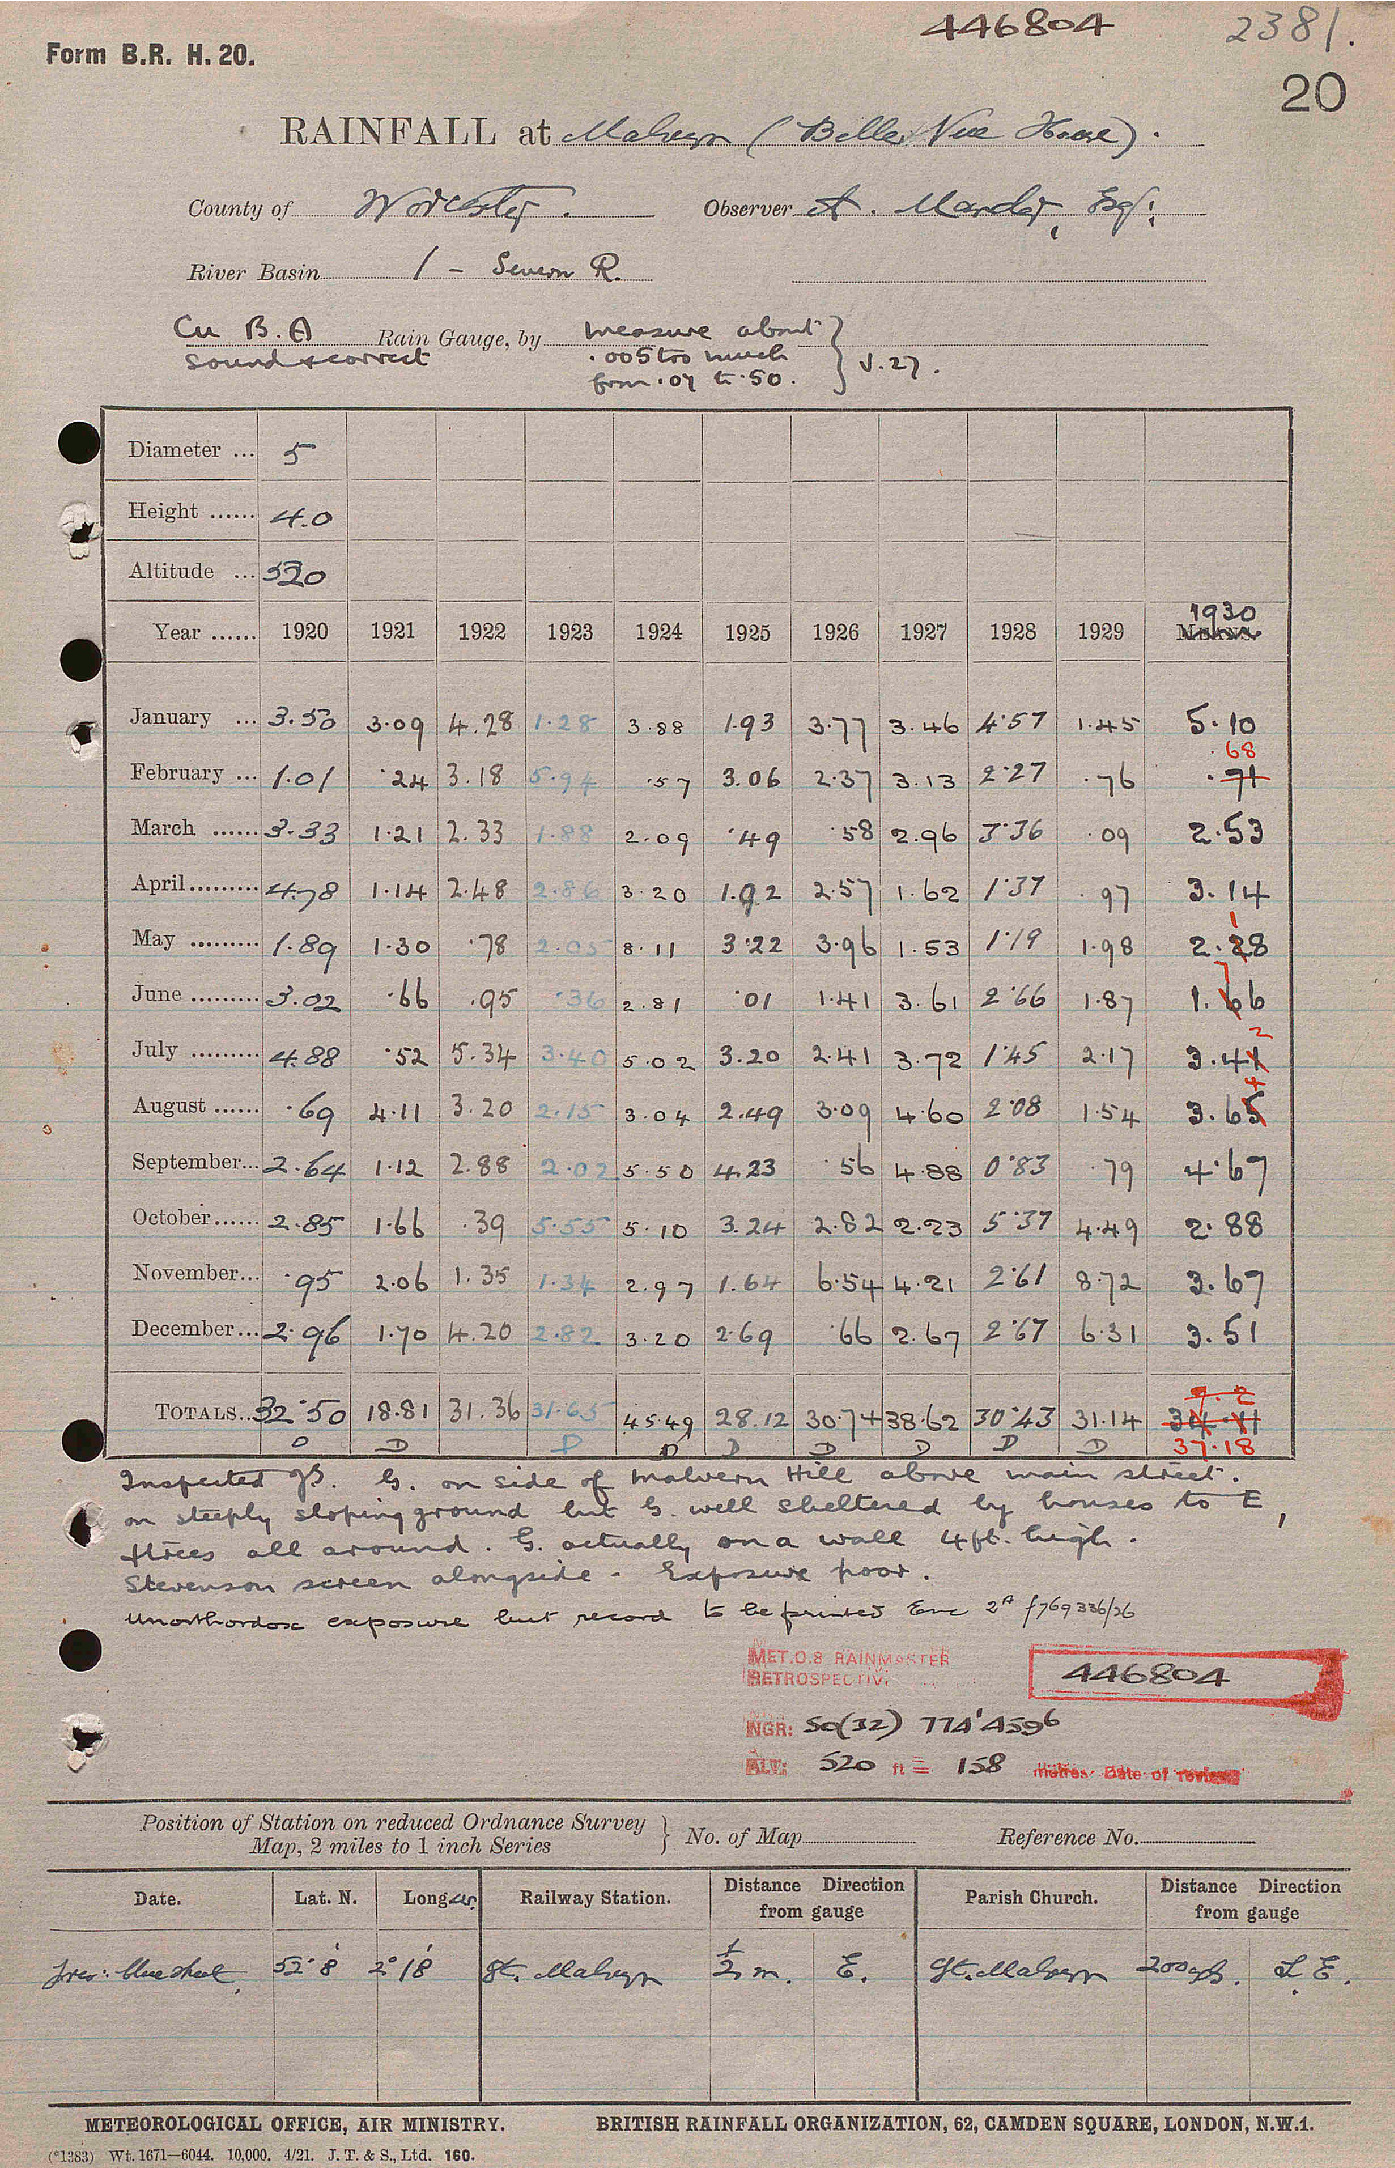 446804 2381.
Form B.R. H. 20.
20
RAINFALL at Malvern (Belle Vue House).
County of Worcester. Observer A. Mander, Esq:
River Basin 1 - Severn R.
Cu B.A Rain Gauge, by measure about
sound & correct .005 too much } V.27.
from .07 to .50.
Diameter ... 5
Height ...... 4.0
Altitude ... 520
1930
Year ...... 1920 1921 1922 1923 1924 1925 1926 1927 1928 1929 MEANS
January ... 3.50 3.09 4.28 1.28 3.88 1.93 3.77 3.46 4.57 1.45 5.10
68
February ... 1.01 .24 3.18 5.94 .57 3.06 2.37 3.13 2.27 .76 .71
March ...... 3.33 1.21 2.33 1.88 2.09 .49 .58 2.96 3.36 .09 2.53
April......... 4.78 1.14 2.48 2.86 3.20 1.92 2.57 1.62 1.37 .97 3.14
1
May ......... 1.89 1.30 .78 2.05 8.11 3.22 3.96 1.53 1.19 1.98 2.28
7
June ......... 3.02 .66 .95 .36 2.81 .01 1.41 3.61 2.66 1.87 1.66
2
July ......... 4.88 .52 5.34 3.40 5.02 3.20 2.41 3.72 1.45 2.17 3.41
4
August ...... .69 4.11 3.20 2.15 3.04 2.49 3.09 4.60 2.08 1.54 3.65
September... 2.64 1.12 2.88 2.02 5.50 4.23 .56 4.88 0.83 .79 4.67
October...... 2.85 1.66 .39 5.55 5.10 3.24 2.82 2.23 5.37 4.49 2.88
November... .95 2.06 1.35 1.34 2.97 1.64 6.54 4.21 2.61 8.72 3.67
December... 2.96 1.70 4.20 2.82 3.20 2.69 .66 2.67 2.67 6.31 3.51
TOTALS.. 32.50 18.81 31.36 31.65 45.49 28.12 30.74 38.62 30.43 31.14
D D D D D D D D D 37.18
Inspected G. on side of Malvern Hill above main street.
on steeply sloping ground but G. well sheltered by houses to E,
& trees all around. G. actually on a wall 4ft. high.
Stevenson screen alongside - Exposure poor.
Unorthordox exposure but record to be printed Enc 2A f769336/26
MET.O.8 RAINMASTER
RETROSPECTIVE
446804
NGR: SO(32) 774'4596
ALT: 520 ft = 158 metres. Date of review
Position of Station on reduced Ordnance Survey
Map, 2 miles to 1 inch Series } No. of Map Reference No.
Date. Lat. N. Long W. Railway Station. Distance Direction from gauge Parish Church. Distance Direction from gauge
prev: blue sheet 52° 8' 2° 18' Gt. Malvern 1/2 m. E. Gt. Malvern 200 yds. S.E.
METEOROLOGICAL OFFICE, AIR MINISTRY. BRITISH RAINFALL ORGANIZATION, 62, CAMDEN SQUARE, LONDON, N.W.1.
(*1383) Wt. 1671—6044. 10,000. 4/21. J. T. & S., Ltd. 160.